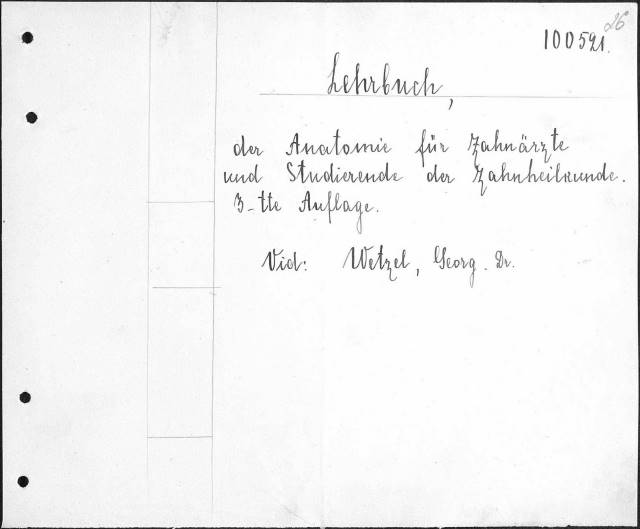 26
100521.
Lehrbuch,
der Anatomie für Zahnärzte
und Studierende der Zahnheilkunde.
3-tte Auflage.
Vid: Wetzel, Georg. Dr.